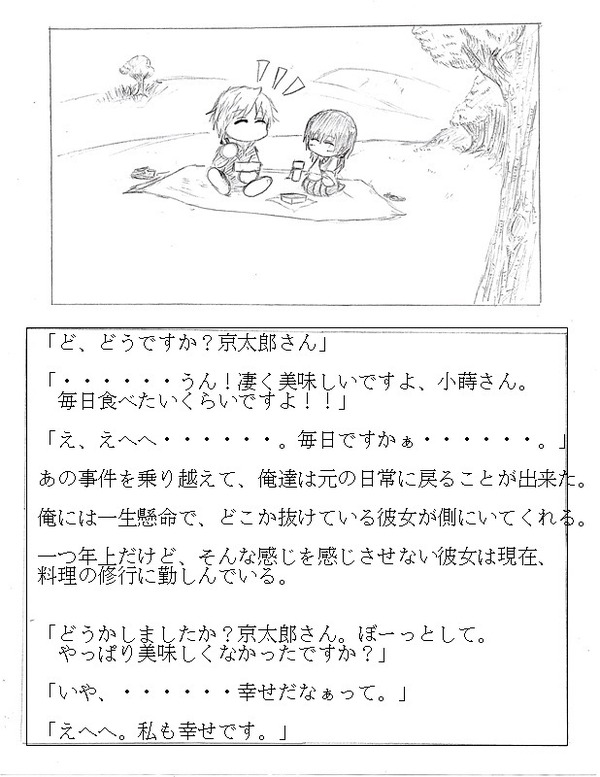 「ど、どうですか？京太郎さん」
「・・・・・・うん！凄く美味しいですよ、小蒔さん。
毎日食べたいくらいですよ！！」
「え、えへへ・・・・・・。毎日ですかぁ・・・・・・。」
あの事件を乗り越えて、俺達は元の日常に戻ることが出来た。
俺には一生懸命で、どこか抜けている彼女が側にいてくれる。
一つ年上だけど、そんな感じを感じさせない彼女は現在、
料理の修行に勤しんでいる。
「どうかしましたか？京太郎さん。ぼーっとして。
やっぱり美味しくなかったですか？」
「いや、・・・・・・幸せだなぁって。」
「えへへ。私も幸せです。」